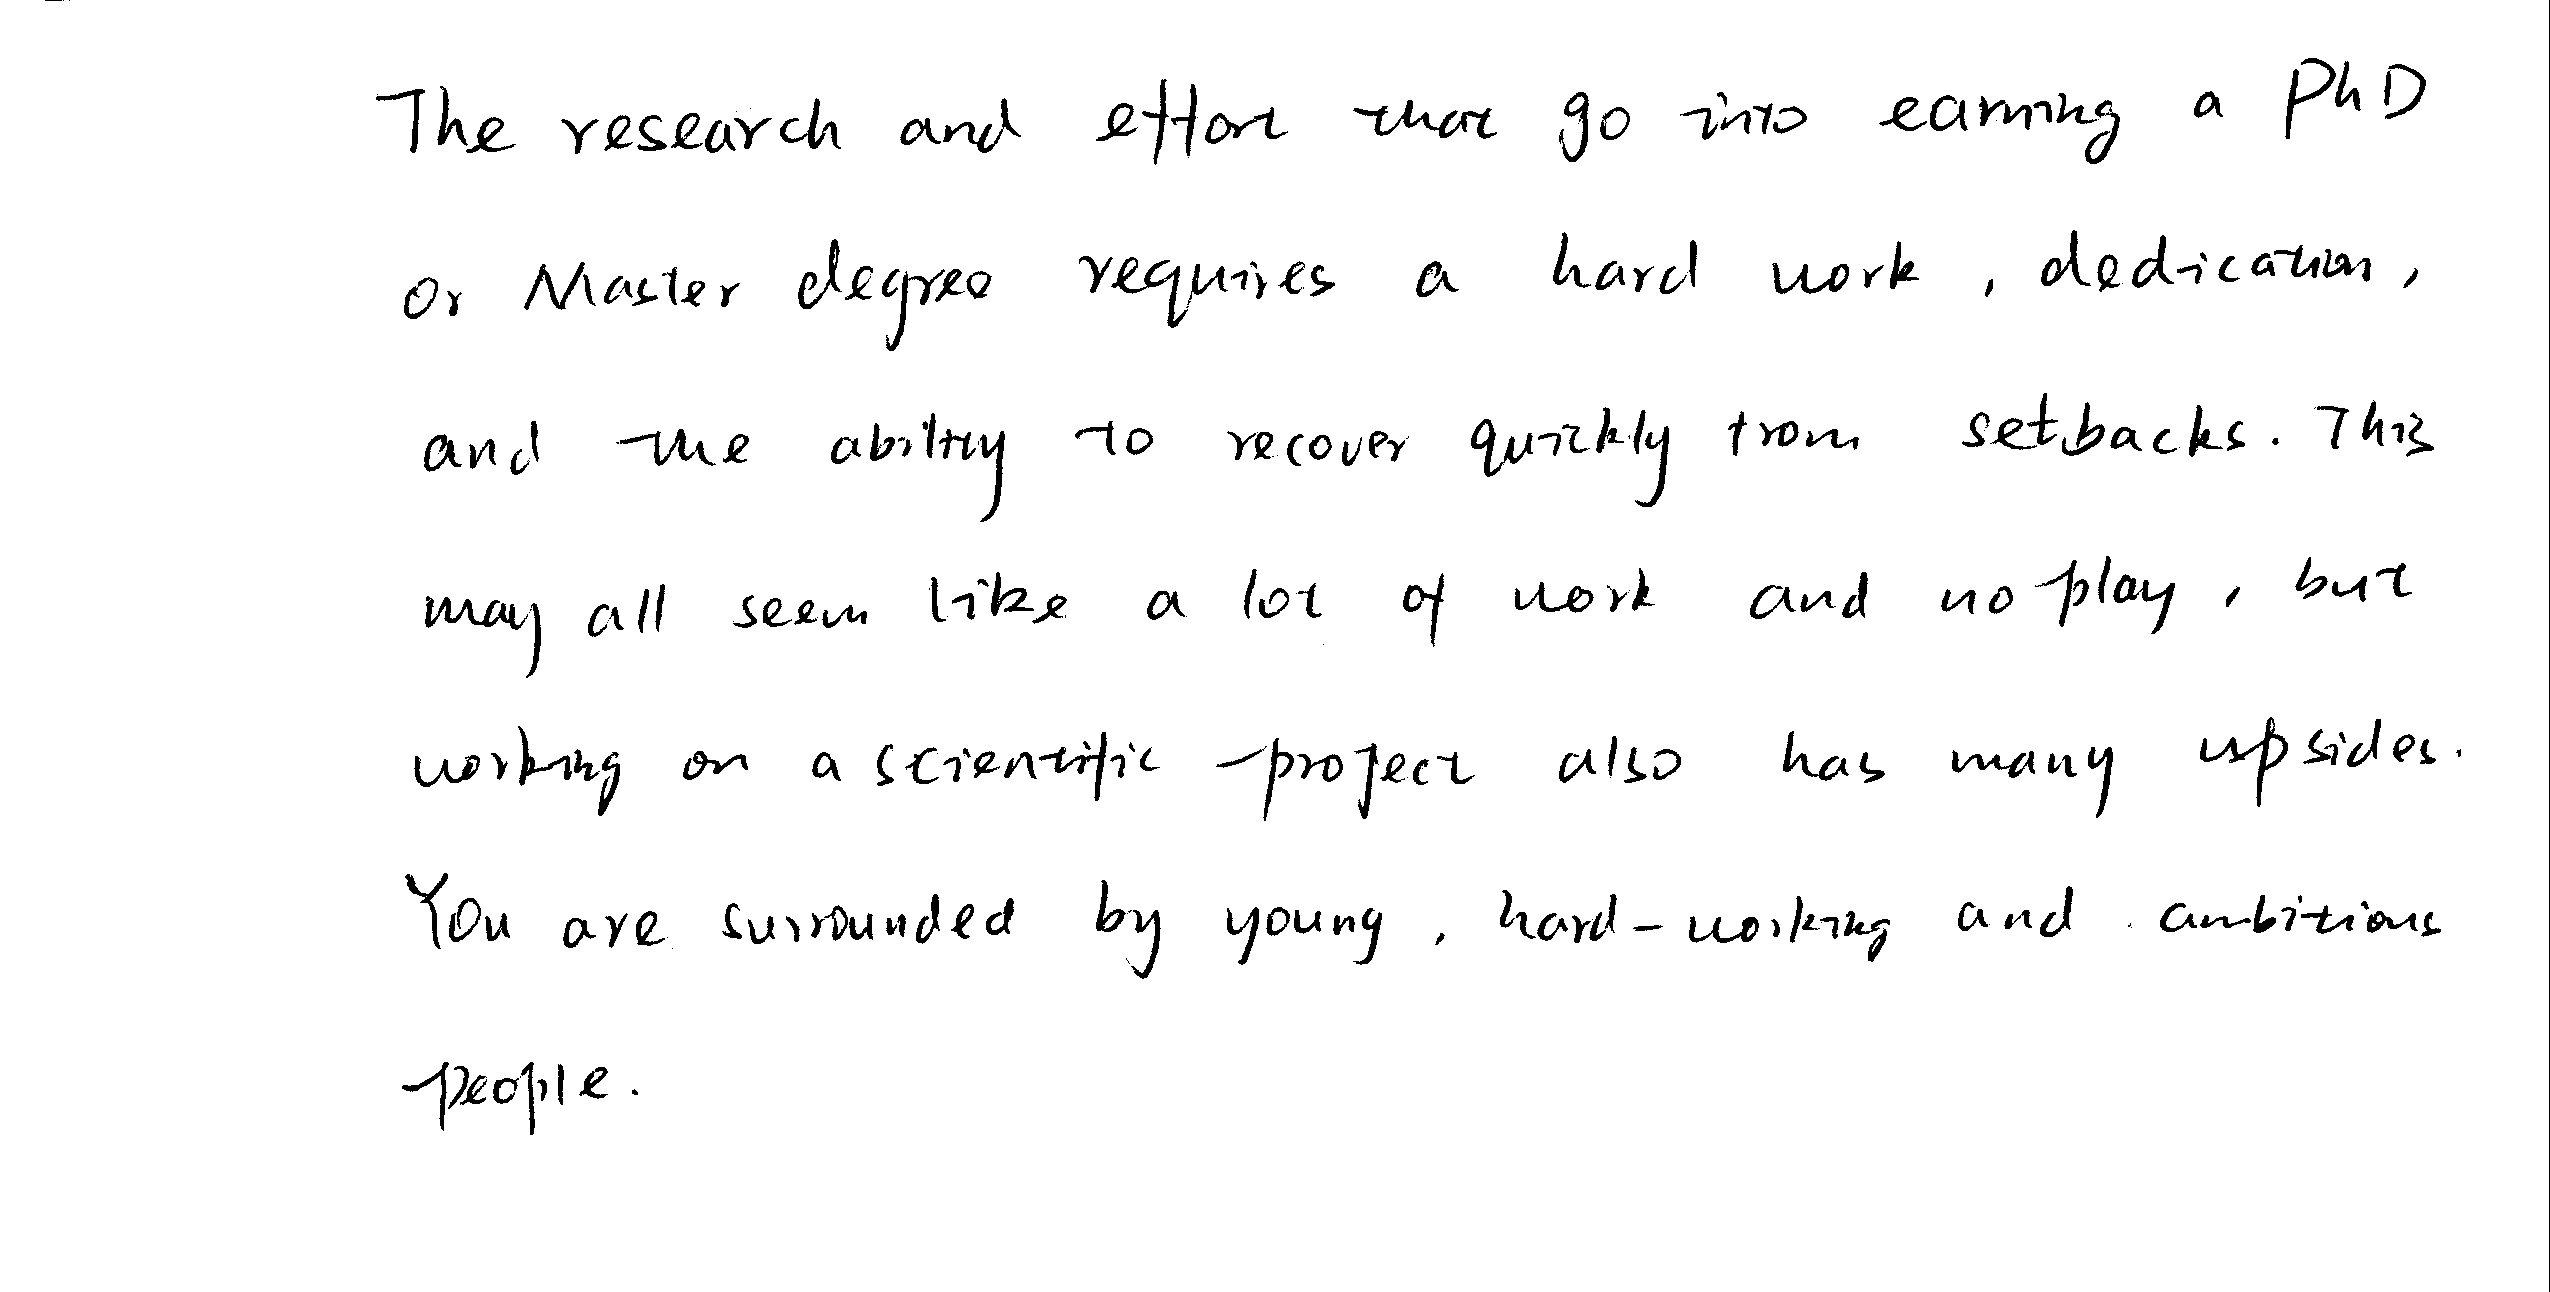 The research and effort that go into earning a PhD
or Master degree requires a hard work, dedication,
and the ability to recover quickly from setbacks. This
may all seem like a lot of work and no play, but
working on a scientific project also has many upsides.
You are surrounded by young, hard-working and ambitious
people.